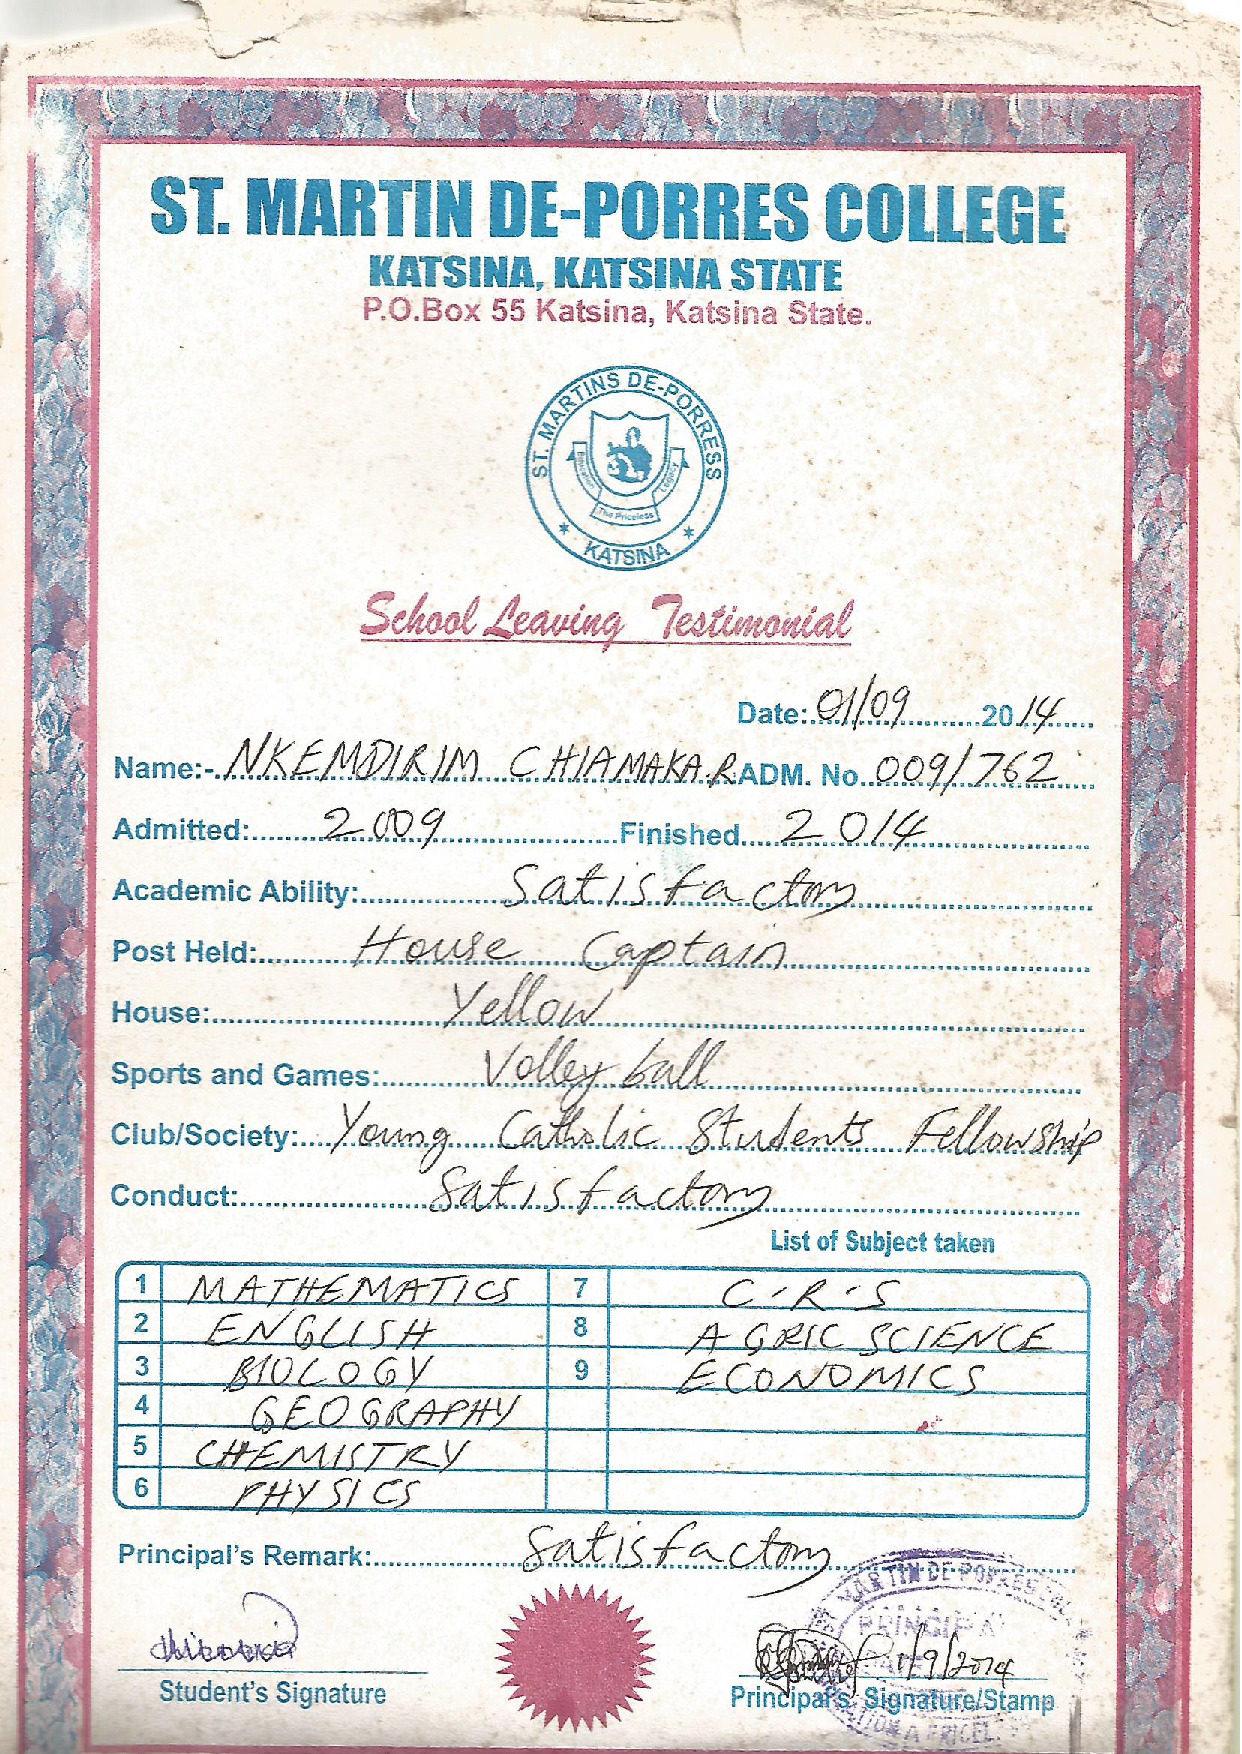 ST. MARTIN DE-PORRES COLLEGE
KATSINA, KATSINA STATE
P.O.Box 55 Katsina, Katsina State.
ST. MARTINS DE-PORRESS
Education
Legacy
The Priceless
KATSINA
School Leaving Testimonial
Date: 01/09 2014
Name:- NKEMDIRIM CHIAMAKA.R ADM. No. 009/762
Admitted: 2009 Finished 2014
Academic Ability: Satisfactory
Post Held: House Captain
House: Yellow
Sports and Games: Volley ball
Club/Society: Young Catholic Students Fellowship
Conduct: Satisfactory
List of Subject taken
1 MATHEMATICS 7 C.R.S
2 ENGLISH 8 AGRIC SCIENCE
3 BIOLOGY 9 ECONOMICS
4 GEOGRAPHY
5 CHEMISTRY
6 PHYSICS
Principal's Remark: Satisfactory
MARTIN DE PORRES
PRINCIPAL
DATE
1/9/2014
Student's Signature Principal's Signature/Stamp